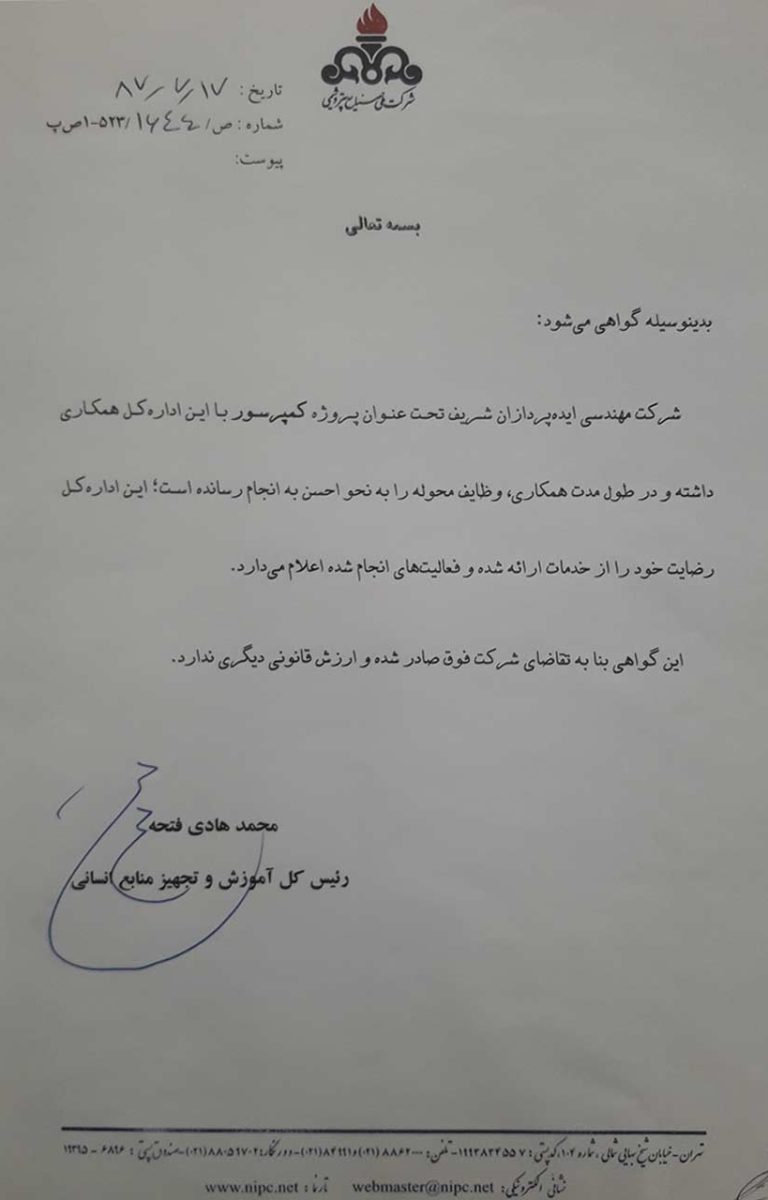 شرکت ملی صنایع پتروشیمی
تاریخ: ۸۷/۷/۱۷
شماره: ص/۱۶۴۴/۵۲۳-۱ص پ
پیوست:
بسمه تعالی
بدینوسیله گواهی می‌شود:
شرکت مهندسی ایده‌پردازان شریف تحت عنوان پروژه کمپرسور با این اداره‌کل همکاری
داشته و در طول مدت همکاری، وظایف محوله را به نحو احسن به انجام رسانده است؛ این اداره‌کل
رضایت خود را از خدمات ارائه شده و فعالیت‌های انجام شده اعلام می‌دارد.
این گواهی بنا به تقاضای شرکت فوق صادر شده و ارزش قانونی دیگری ندارد.
محمد هادی فتحه
رئیس کل آموزش و تجهیز منابع انسانی
تهران-خیابان شیخ بهایی شمالی، شماره ۱۰۴، کدپستی: ۱۹۹۳۸۳۴۵۵۷-تلفن: ۸۸۶۲۰۰۰۰(۰۲۱)و۸۴۹۹۱(۰۲۱)-دورنگار: ۸۸۰۵۹۷۰۲(۰۲۱)-صندوق پستی: ۶۸۹۶ - ۱۹۳۹۵
نشانی الکترونیکی: webmaster@nipc.net تارنما: www.nipc.net